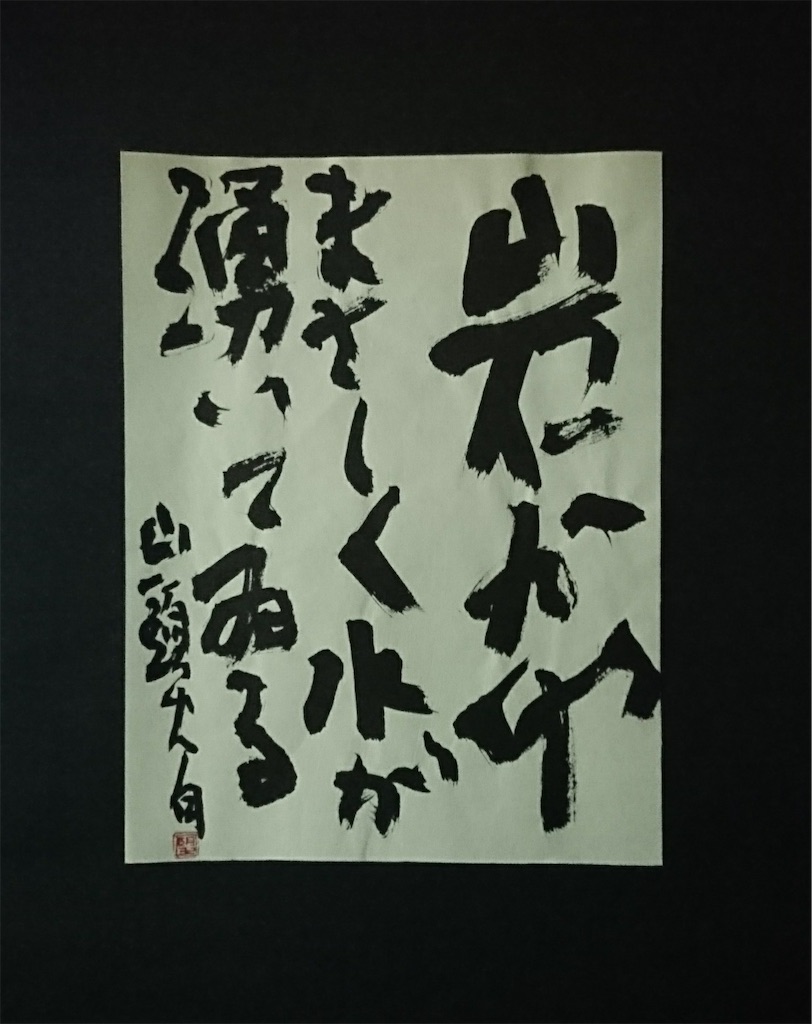 岩かげ
まさしく水が
湧いてゐる
山頭火句